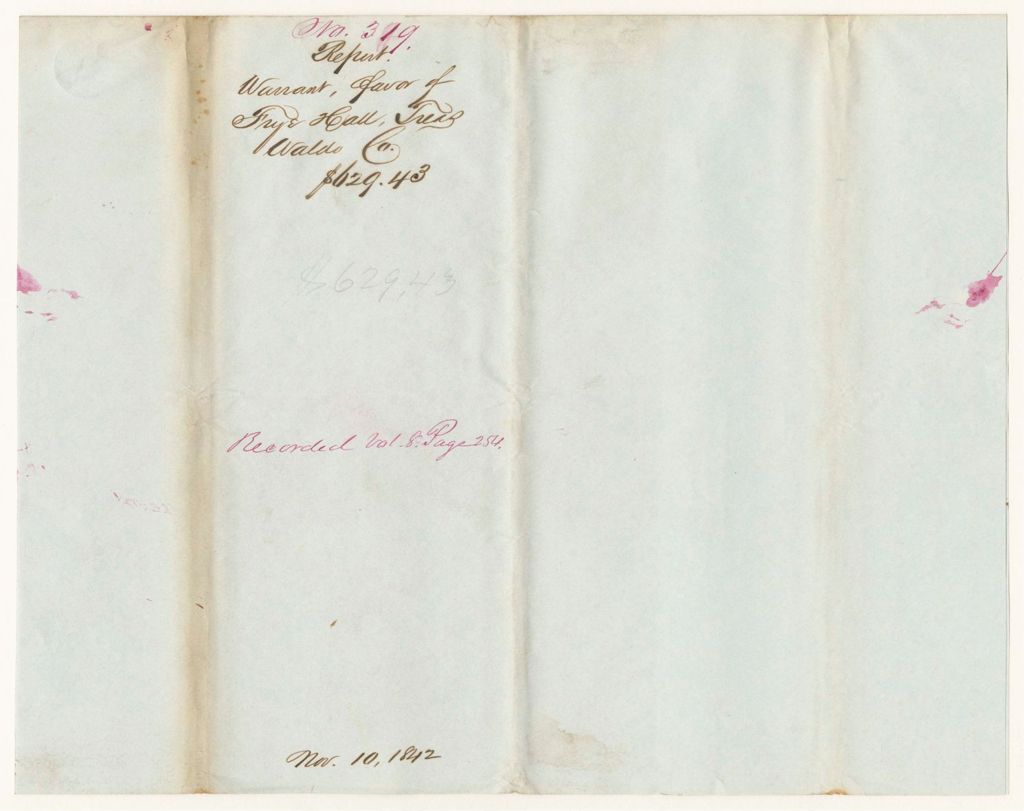 No. 319.
Report.
Warrant, favor of
Frye Hall, Treas
Waldo Co.
$629.43
$629,43
Recorded Vol. 8. Page 254.
Nov. 10, 1842